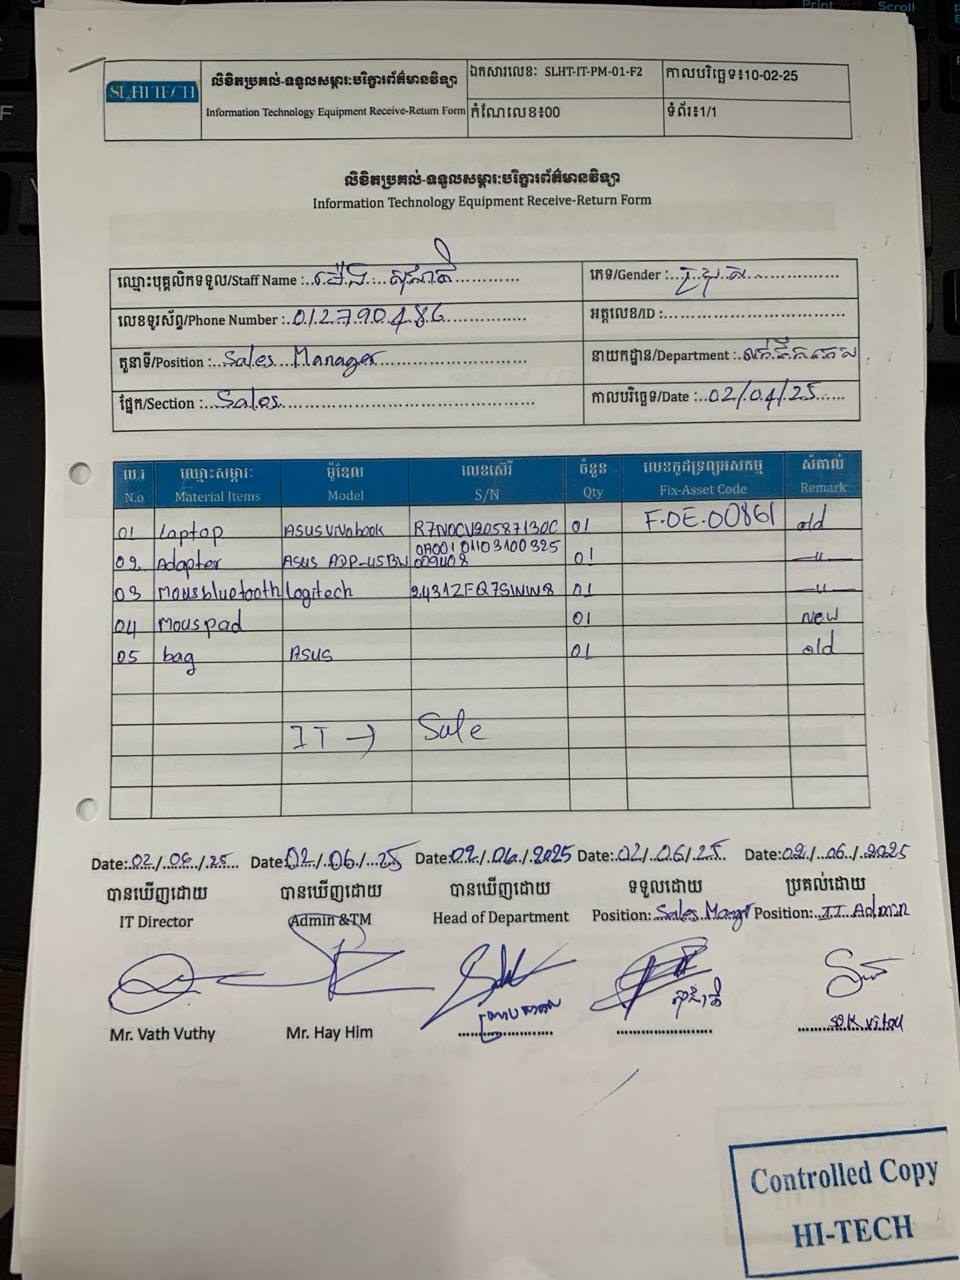 Print
Scroll
SLHI TECH
លិខិតប្រគល់-ទទួលសម្ភារៈបរិក្ខារព័ត៌មានវិទ្យា
Information Technology Equipment Receive-Return Form
ឯកសារលេខៈ SLHT-IT-PM-01-F2
កាលបរិច្ឆេទ៖10-02-25
កំណែលេខ៖00
ទំព័រ៖1/1
លិខិតប្រគល់-ទទួលសម្ភារៈបរិក្ខារព័ត៌មានវិទ្យា
Information Technology Equipment Receive-Return Form
ឈ្មោះបុគ្គលិកទទួល/Staff Name :
ភេទ/Gender :
លេខទូរស័ព្ទ/Phone Number : 012790486
អត្តលេខ/ID :
តួនាទី/Position : Sales Manager
នាយកដ្ឋាន/Department :
ផ្នែក/Section : Sales
កាលបរិច្ឆេទ/Date : 02/04/25
ល.រ ឈ្មោះសម្ភារៈ ម៉ូឌែល លេខស៊េរី ចំនួន លេខកូដទ្រព្យអសកម្ម សំគាល់
N.o Material Items Model S/N Qty Fix-Asset Code Remark
01 Laptop ASUS Vivobook R7N0CV20587130C 01 F-OE-00861 old
02 Adapter ASUS ADP-45BW 0A001 01103100325 009408 01 "
03 Mousbluetooth Logitech 2431ZFQ7SWW8 01 "
04 Mouspad 01 New
05 bag ASUS 01 old
IT → Sale
Date: 02/06/25 Date: 02/06/25 Date: 02/06/2025 Date: 02/06/25 Date: 02/06/2025
បានឃើញដោយ បានឃើញដោយ បានឃើញដោយ ទទួលដោយ ប្រគល់ដោយ
IT Director Admin &TM Head of Department Position: Sales Position: IT Admin
Mr. Vath Vuthy Mr. Hay Him
Controlled Copy
HI-TECH